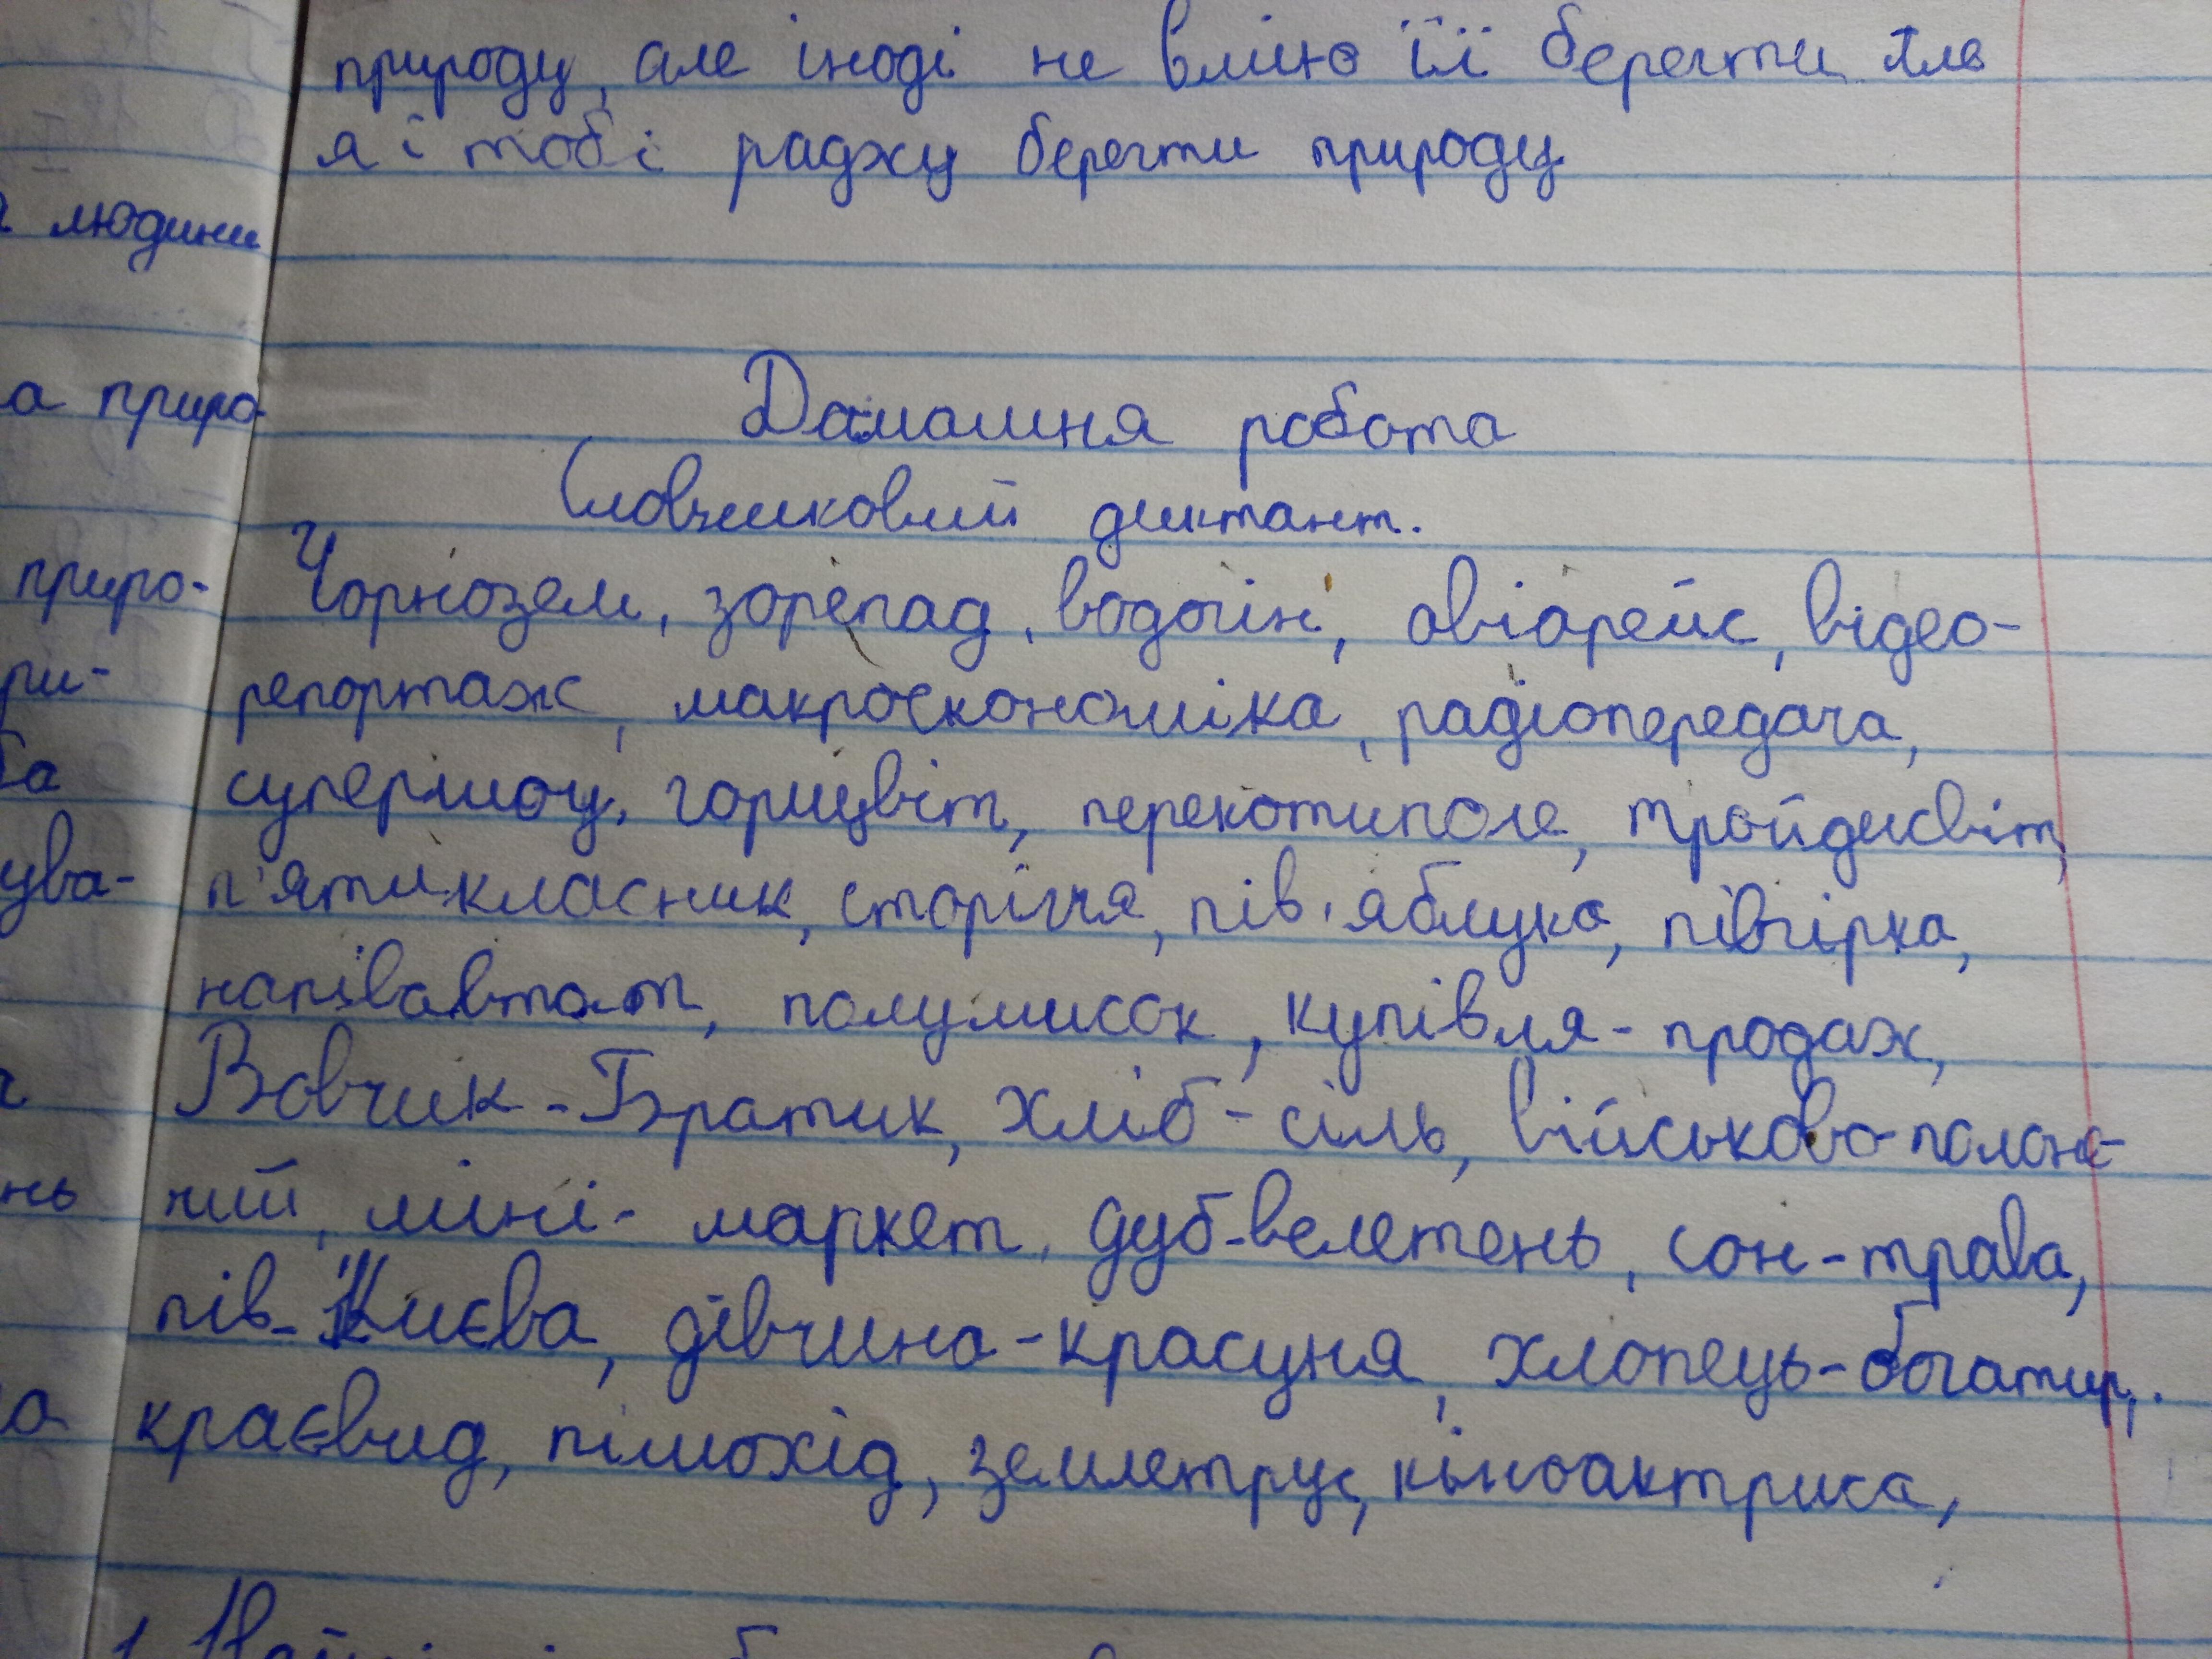 природу, але іноді не вмію її берегти. Але
я і тобі раджу берегти природу
людини
а приро-
Дамашня робота
Словниковий диктант.
приро-
Чорнозем, зорепад, водогін, авіарейс, відео-
ри-
репортаж, макроекономіка, радіопередача,
супершоу, горицвіт, перекотиполе, тройдисвіт,
ува-
п'ятикласник, сторіччя, пів'яблука, півгірка,
напівавтомат, полумисок, купівля-продаж,
Вовчик-Братик, хліб-сіль, військово-полоне-
нь
чий, міні-маркет, дуб-велетень, сон-трава,
пів-Києва, дівчина-красуня, хлопець-богатир,.
краєвид, пішохід, землетрус, кіноактриса,